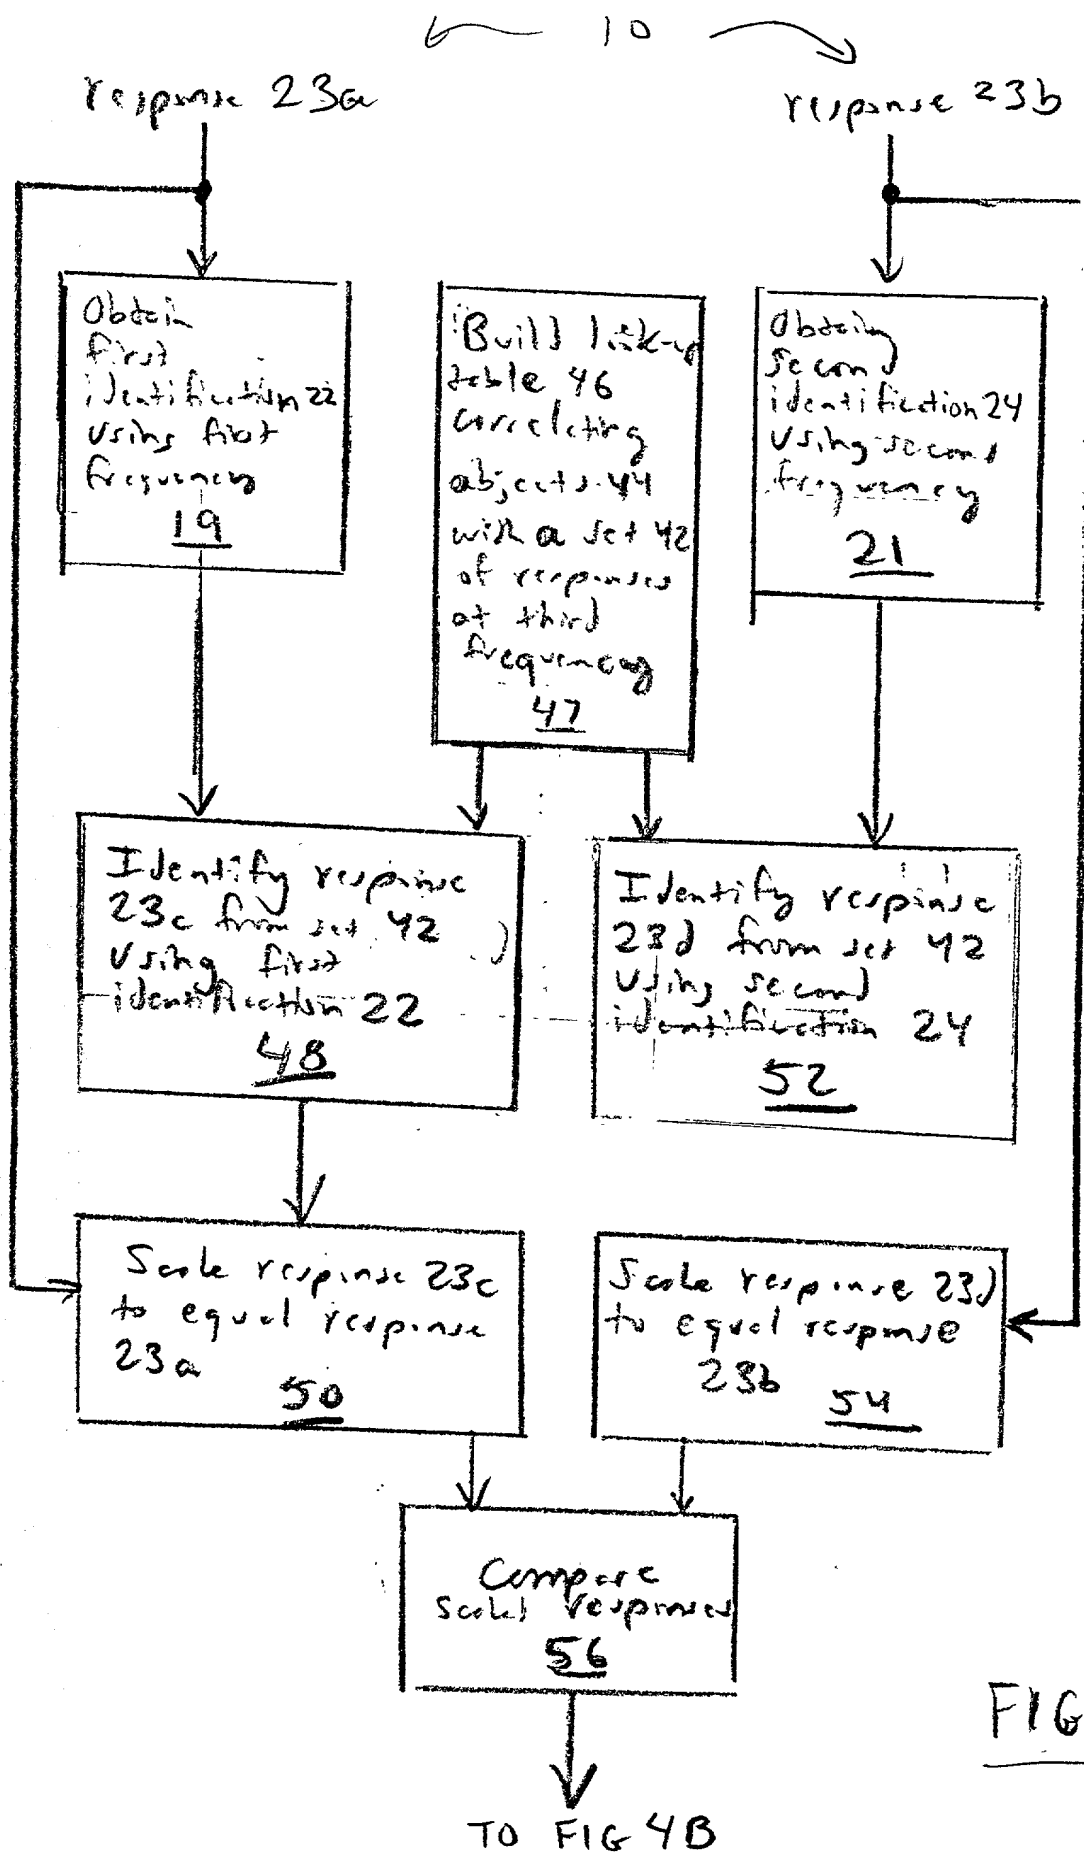 10
response 23a
response 23b
Obtain
first
identification 22
using first
frequency
19
Build look-up
table 46
correlating
objects 44
with a set 42
of responses
at third
frequency
47
Obtain
second
identification 24
using second
frequency
21
Identify response
23c from set 42
using first
identification 22
48
Identify response
23d from set 42
using second
identification 24
52
Scale response 23c
to equal response
23a
50
Scale response 23d
to equal response
23b
54
Compare
scaled responses
56
FIG
TO FIG 4B